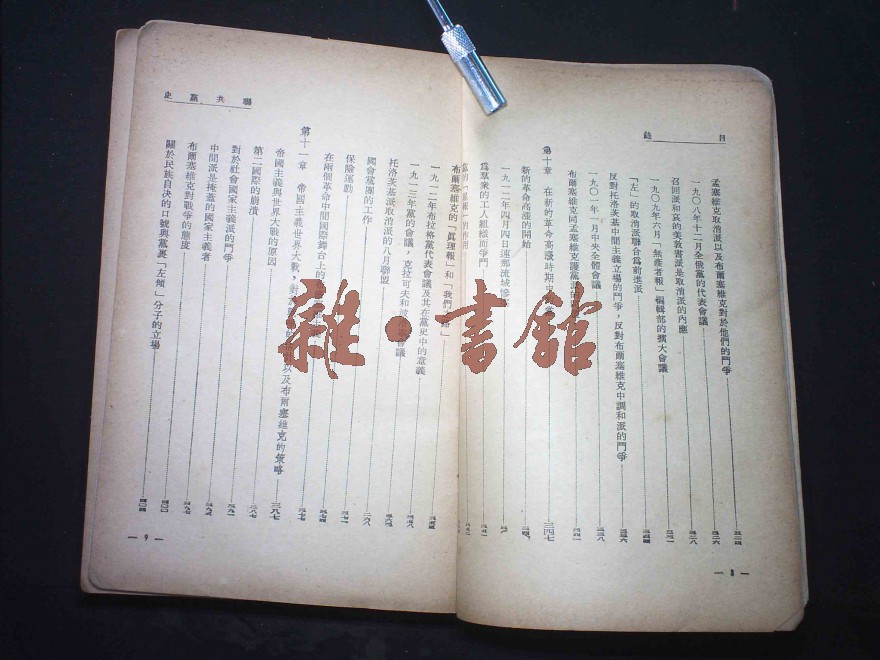 目錄
孟塞維克取消派以及布爾塞維克對於他們的鬥爭
一九〇八年十二月全俄黨的代表會議
一九〇九年六月「無產者報」編輯部的擴大會議
召回派和哀的美敦書派是取消派的內應
「左」的取消派聯合為前進派
反對托洛茨基中間主義立場的鬥爭，反對布爾塞維克中調和派的鬥爭
一九〇一年一月中央全體會議
布爾塞維克同孟塞維克護黨派的
第十章 在新的革命高漲時期 三四七
新的革命高漲的開始
一九一二年四月四日連那流域慘
為羣眾的工人組織而爭鬥
布爾塞維克的「真理報」和「我們
一九一二年布拉格黨代表會議及其在黨史中的意義
一九一三年黨的會議，克拉可夫和波 會議
托洛茨基派取消派的八月聯盟
國會黨團的工作
保險運動
在兩個革命中間國際舞台上的
第十一章 帝國主義世界大戰，對 以及布爾塞維克的策略 三八七
帝國主義與世界大戰的原因 三八七
第二國際的崩潰
對於社會國家主義派的鬥爭 三九一
中間派是掩蓋的國家主義者
布爾塞維克對戰爭的態度 三九七
關於民族自決的口號與黨裏「左傾」分子的立場
— 8 —
聯共黨史
— 9 —
雜·書館